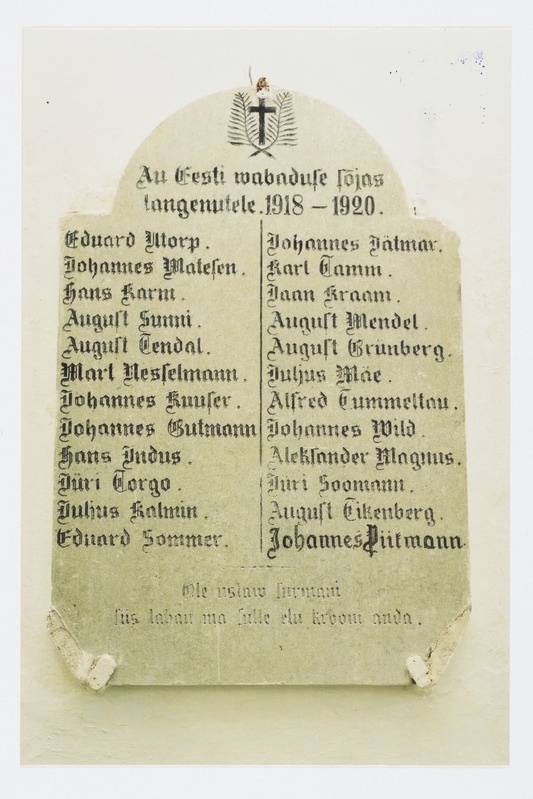 Au Eesti wabaduse sõjas
langenutele. 1918 – 1920.
Eduard Utorp.
Johannes Matesen.
Hans Karm.
August Sunni.
August Tendal.
Mart Nesselmann.
Johannes Kuuser.
Johannes Gutmann
Hans Indus.
Jüri Torgo.
Julius Kalmin.
Eduard Sommer.
Johannes Jätmar.
Karl Tamm.
Jaan Kraam.
August Mendel.
August Grünberg.
Juljus Mäe.
Alfred Tummeltau.
Johannes Wild.
Aleksander Magnus.
Jüri Soomann.
August Tikenberg.
Johannes Piitmann
Ole ustaw surmani
siis tahan ma sulle elu krooni anda.